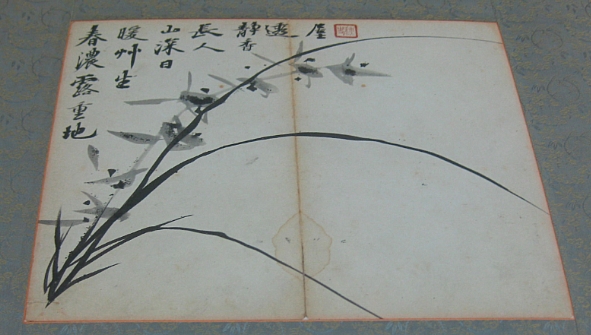 春濃露重地
暖艸生
山深日
長人
靜香
透